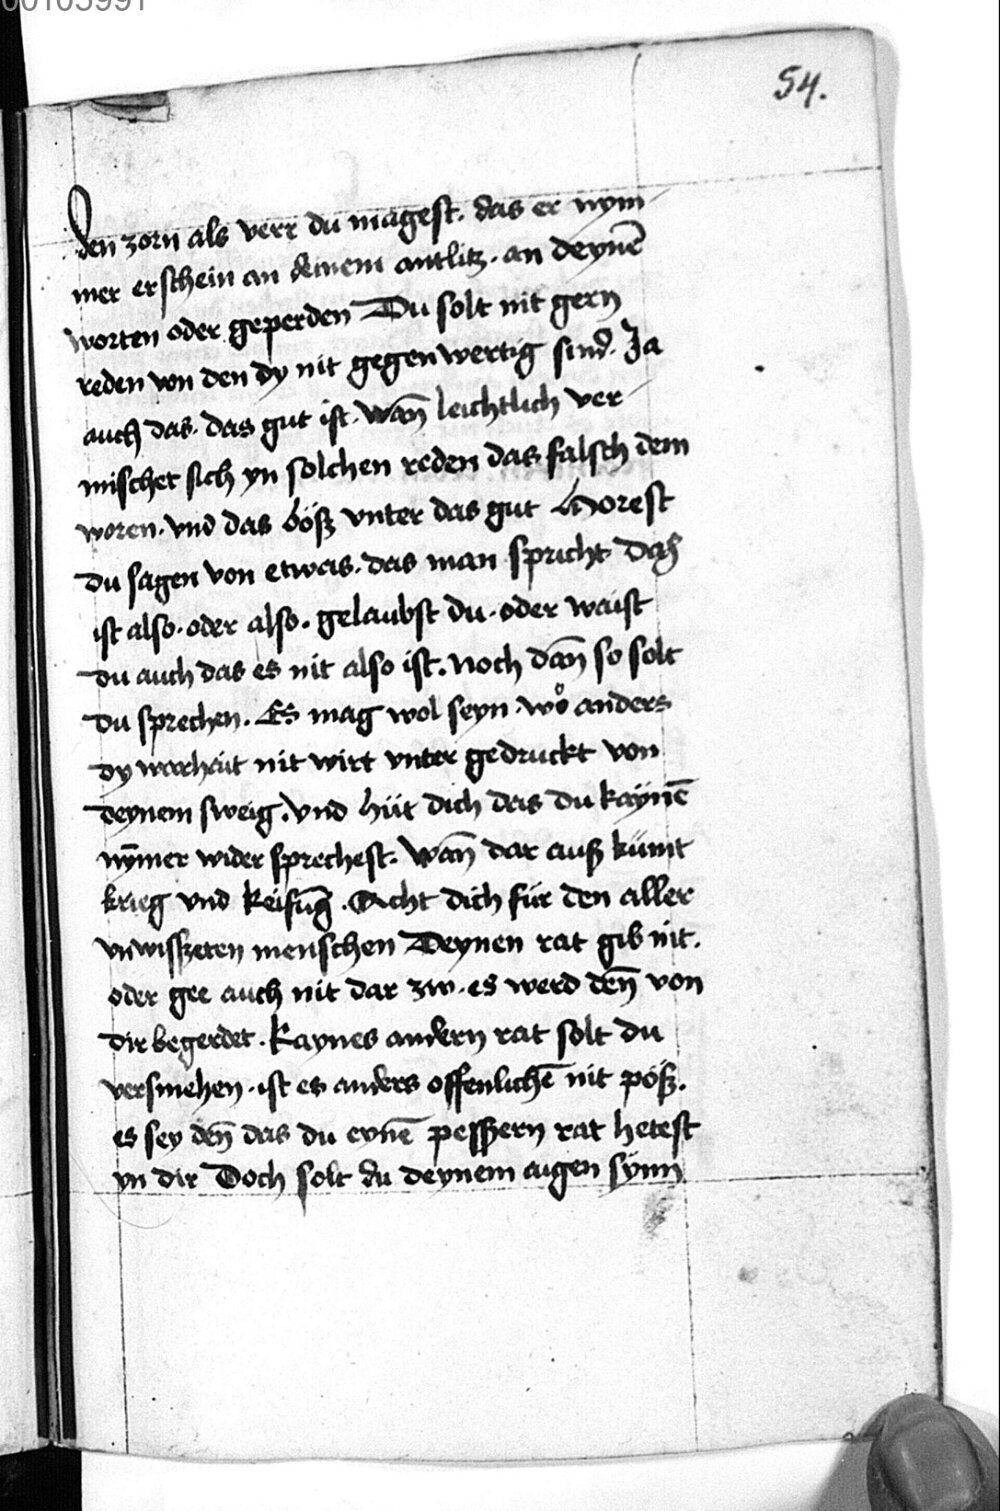 00105991
54.
den zorn als verr du magest. das er nym
mer erschein an deinem antlitz. an deynē
worten oder geperden Du solt nit gern
reden von den dy nit gegenwertig sind. Ja
auch das. das gut ist. wan̄ leichtlich ver
mischet sich yn solchen reden das falsch dem
woren. vnd das böß vnter das gut Horest
du sagen von etwas. das man spricht daß
ist also. oder also. gelaubst du. oder waist
du auch das es nit also ist. noch dan̄ so solt
du sprechen. Es mag wol seyn. wo anders
dy warheit nit wirt vnter gedruckt von
deynem sweig. vnd hüt dich das du kaynē
nȳmer wider sprechest. wan̄ dar auß kümt
krieg vnd keifūg. Acht dich für den aller
vnwisszeten menschen Deynen rat gib nit.
oder gee auch nit dar zw. es werd den̄ von
dir begerdet. kaynes andern rat solt du
versmehen. ist es anders offenlichē nit pöß.
es sey den̄ das du eynē pesszern rat hetest
yn dir Doch solt du deynem aigen synn